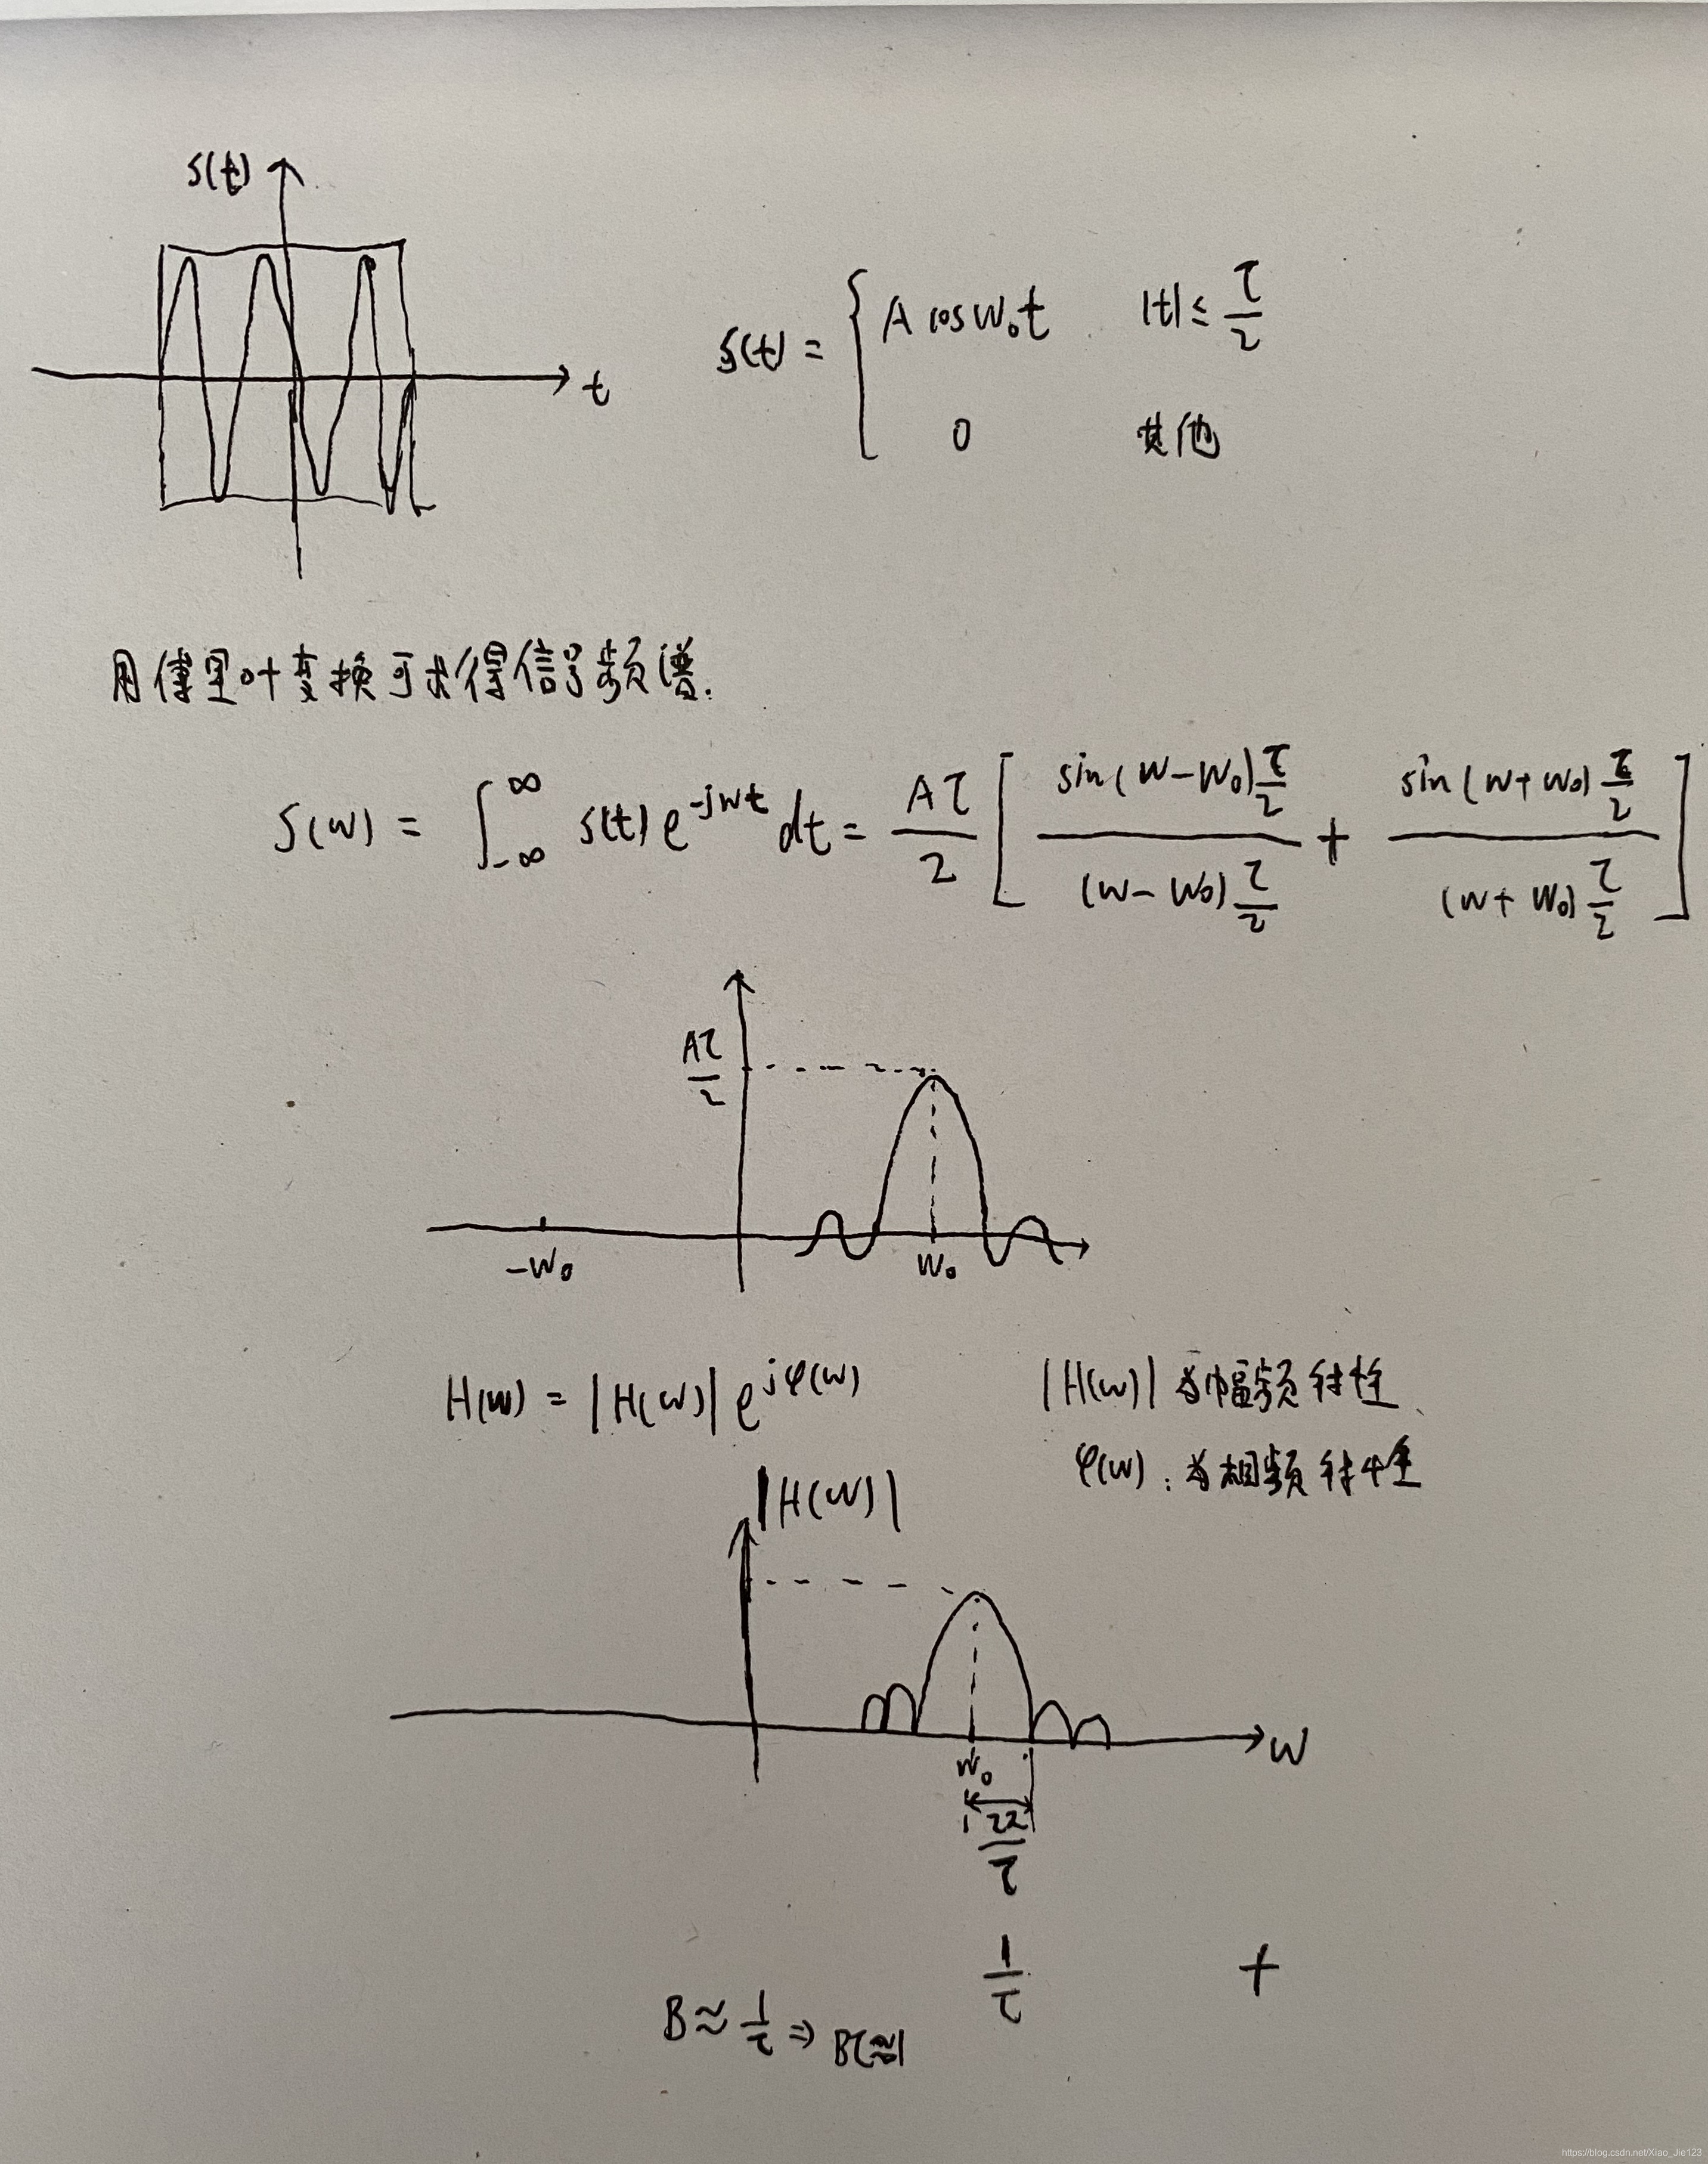 s(t)
t
s(t) = { A cos w₀t |t| ≤ τ/2
0 其他
用傅里叶变换可求得信号频谱.
S(w) = ∫_{-∞}^{∞} s(t) e^{-jwt} dt = Aτ/2 [ sin(w-w₀)τ/2 / (w-w₀)τ/2 + sin(w+w₀)τ/2 / (w+w₀)τ/2 ]
Aτ/2
-w₀ w₀
H(w) = |H(w)| e^{jφ(w)} |H(w)| 为幅频特性
φ(w): 为相频特性
|H(w)|
w
w₀
2π/τ
1/τ +
B ≈ 1/τ ⇒ Bτ≈1
https://blog.csdn.net/Xiao_Jie123